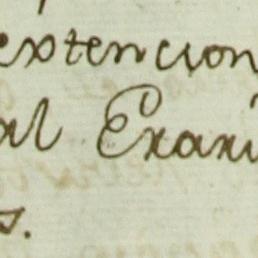 extencion
al Exari
s.